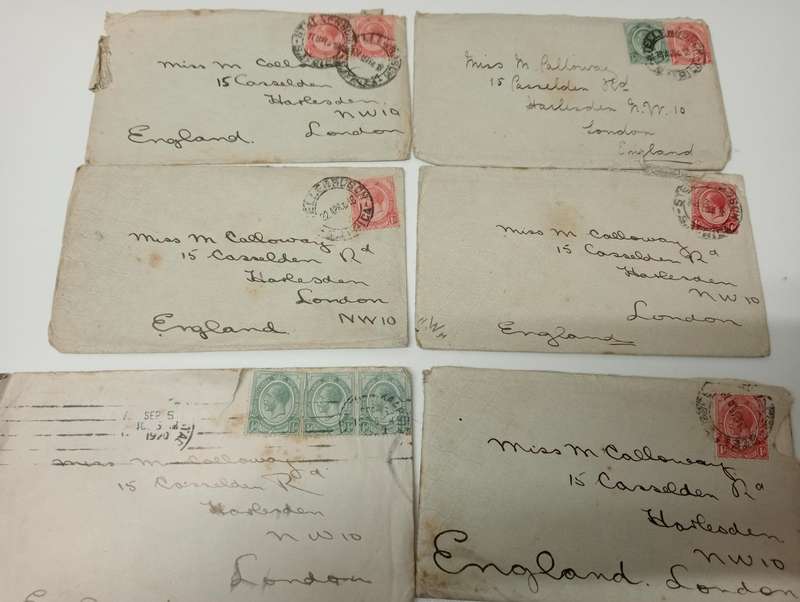 Miss M Calloway
15 Casselden
Harlesden
NW10
England. London
Miss M Calloway
15 Casselden Rd
Harlesden N.W. 10
London
England
Miss M Calloway
15 Casselden Rd
Harlesden
London
England. NW10
Miss M Calloway
15 Casselden Rd
Harlesden
NW10
London
England
SEP 5
1920
Miss M Calloway
15 Casselden Rd
Harlesden
NW10
London
Miss M Calloway
15 Casselden Rd
Harlesden
NW10
England. London